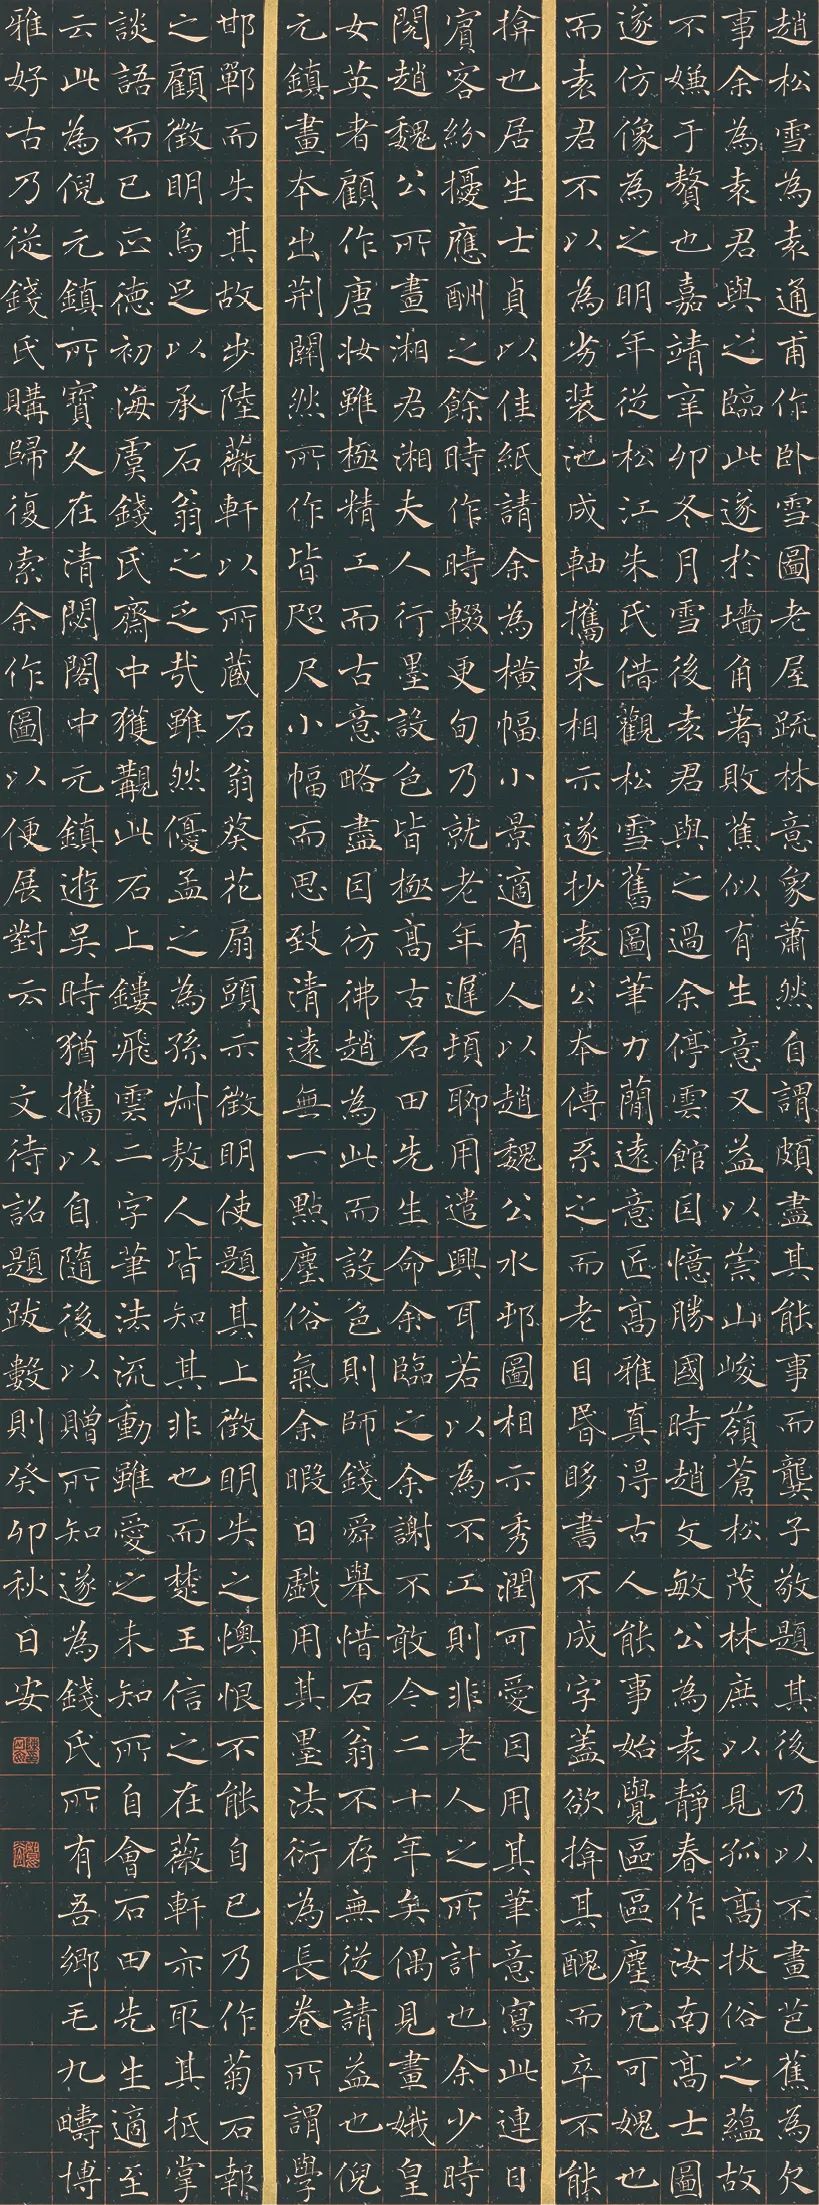 趙松雪為袁通甫作臥雪圖老屋疏林意象蕭然自謂頗盡其能事而龔子敬題其後乃以不畫芭蕉為欠
事余為袁君與之臨此遂於墻角著敗蕉似有生意又益以崇山峻嶺蒼松茂林庶以見孤高拔俗之蘊故
不嫌于贅也嘉靖辛卯冬月雪後袁君與之過余停雲館因憶勝國時趙文敏公為袁靜春作汝南高士圖
遂仿像為之明年從松江朱氏借觀松雪舊圖筆力簡遠意匠高雅真得古人能事始覺區區塵冗可媿也
而袁君不以為劣裝池成軸攜來相示遂抄袁公本傳系之而老目昏眵書不成字蓋欲揜其醜而卒不能
揜也居生士貞以佳紙請余為橫幅小景適有人以趙魏公水邨圖相示秀潤可愛因用其筆意寫此連日
賓客紛擾應酬之餘時作時輟更旬乃就老年遲頓聊用遣興耳若以為不工則非老人之所計也余少時
閱趙魏公所畫湘君湘夫人行墨設色皆極高古石田先生命余臨之余謝不敢今二十年矣偶見畫娥皇
女英者顧作唐妝雖極精工而古意略盡因彷彿趙為此而設色則師錢舜舉惜石翁不存無從請益也倪
元鎮畫本出荊關然所作皆咫尺小幅而思致清遠無一點塵俗氣余暇日戲用其墨法衍為長卷所謂學
邯鄲而失其故步陸薇軒以所藏石翁葵花扇頭示徵明使題其上徵明失之懊恨不能自已乃作菊石報
之顧徵明烏足以承石翁之乏哉雖然優孟之為孫叔敖人皆知其非也而楚王信之在薇軒亦取其抵掌
談語而已正德初海虞錢氏齋中獲觀此石上鏤飛雲二字筆法流動雖愛之未知所自會石田先生適至
云此為倪元鎮所寶久在清閟閣中元鎮遊吳時猶攜以自隨後以贈所知遂為錢氏所有吾鄉毛九疇博
雅好古乃從錢氏購歸復索余作圖以便展對云　文待詔題跋數則癸卯秋日安